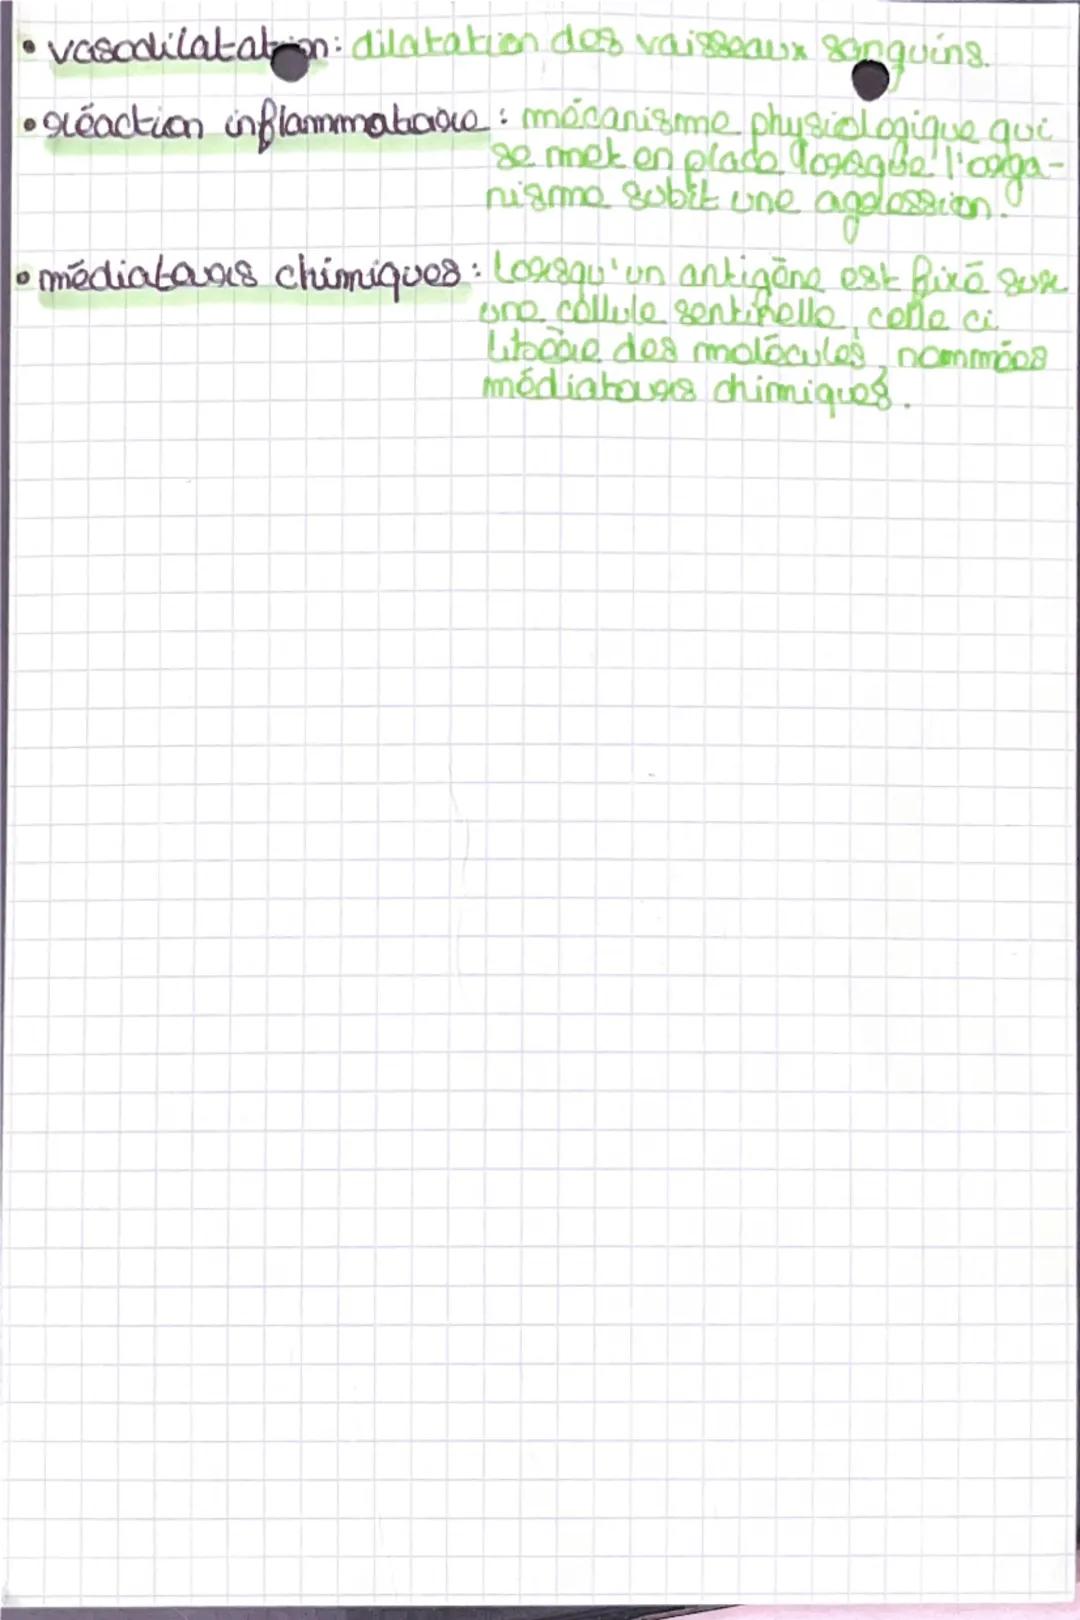 • vasodilatation : dilatation des vaisseaux sanguins.
• réaction inflammatoire : mécanisme physiologique qui
se met en place lorsque l'orga-
nisme subit une agression.
• médiateurs chimiques : Lorsqu'un antigène est fixé sur
une cellule sentinelle, celle ci
libère des molécules, nommées
médiateurs chimiques.